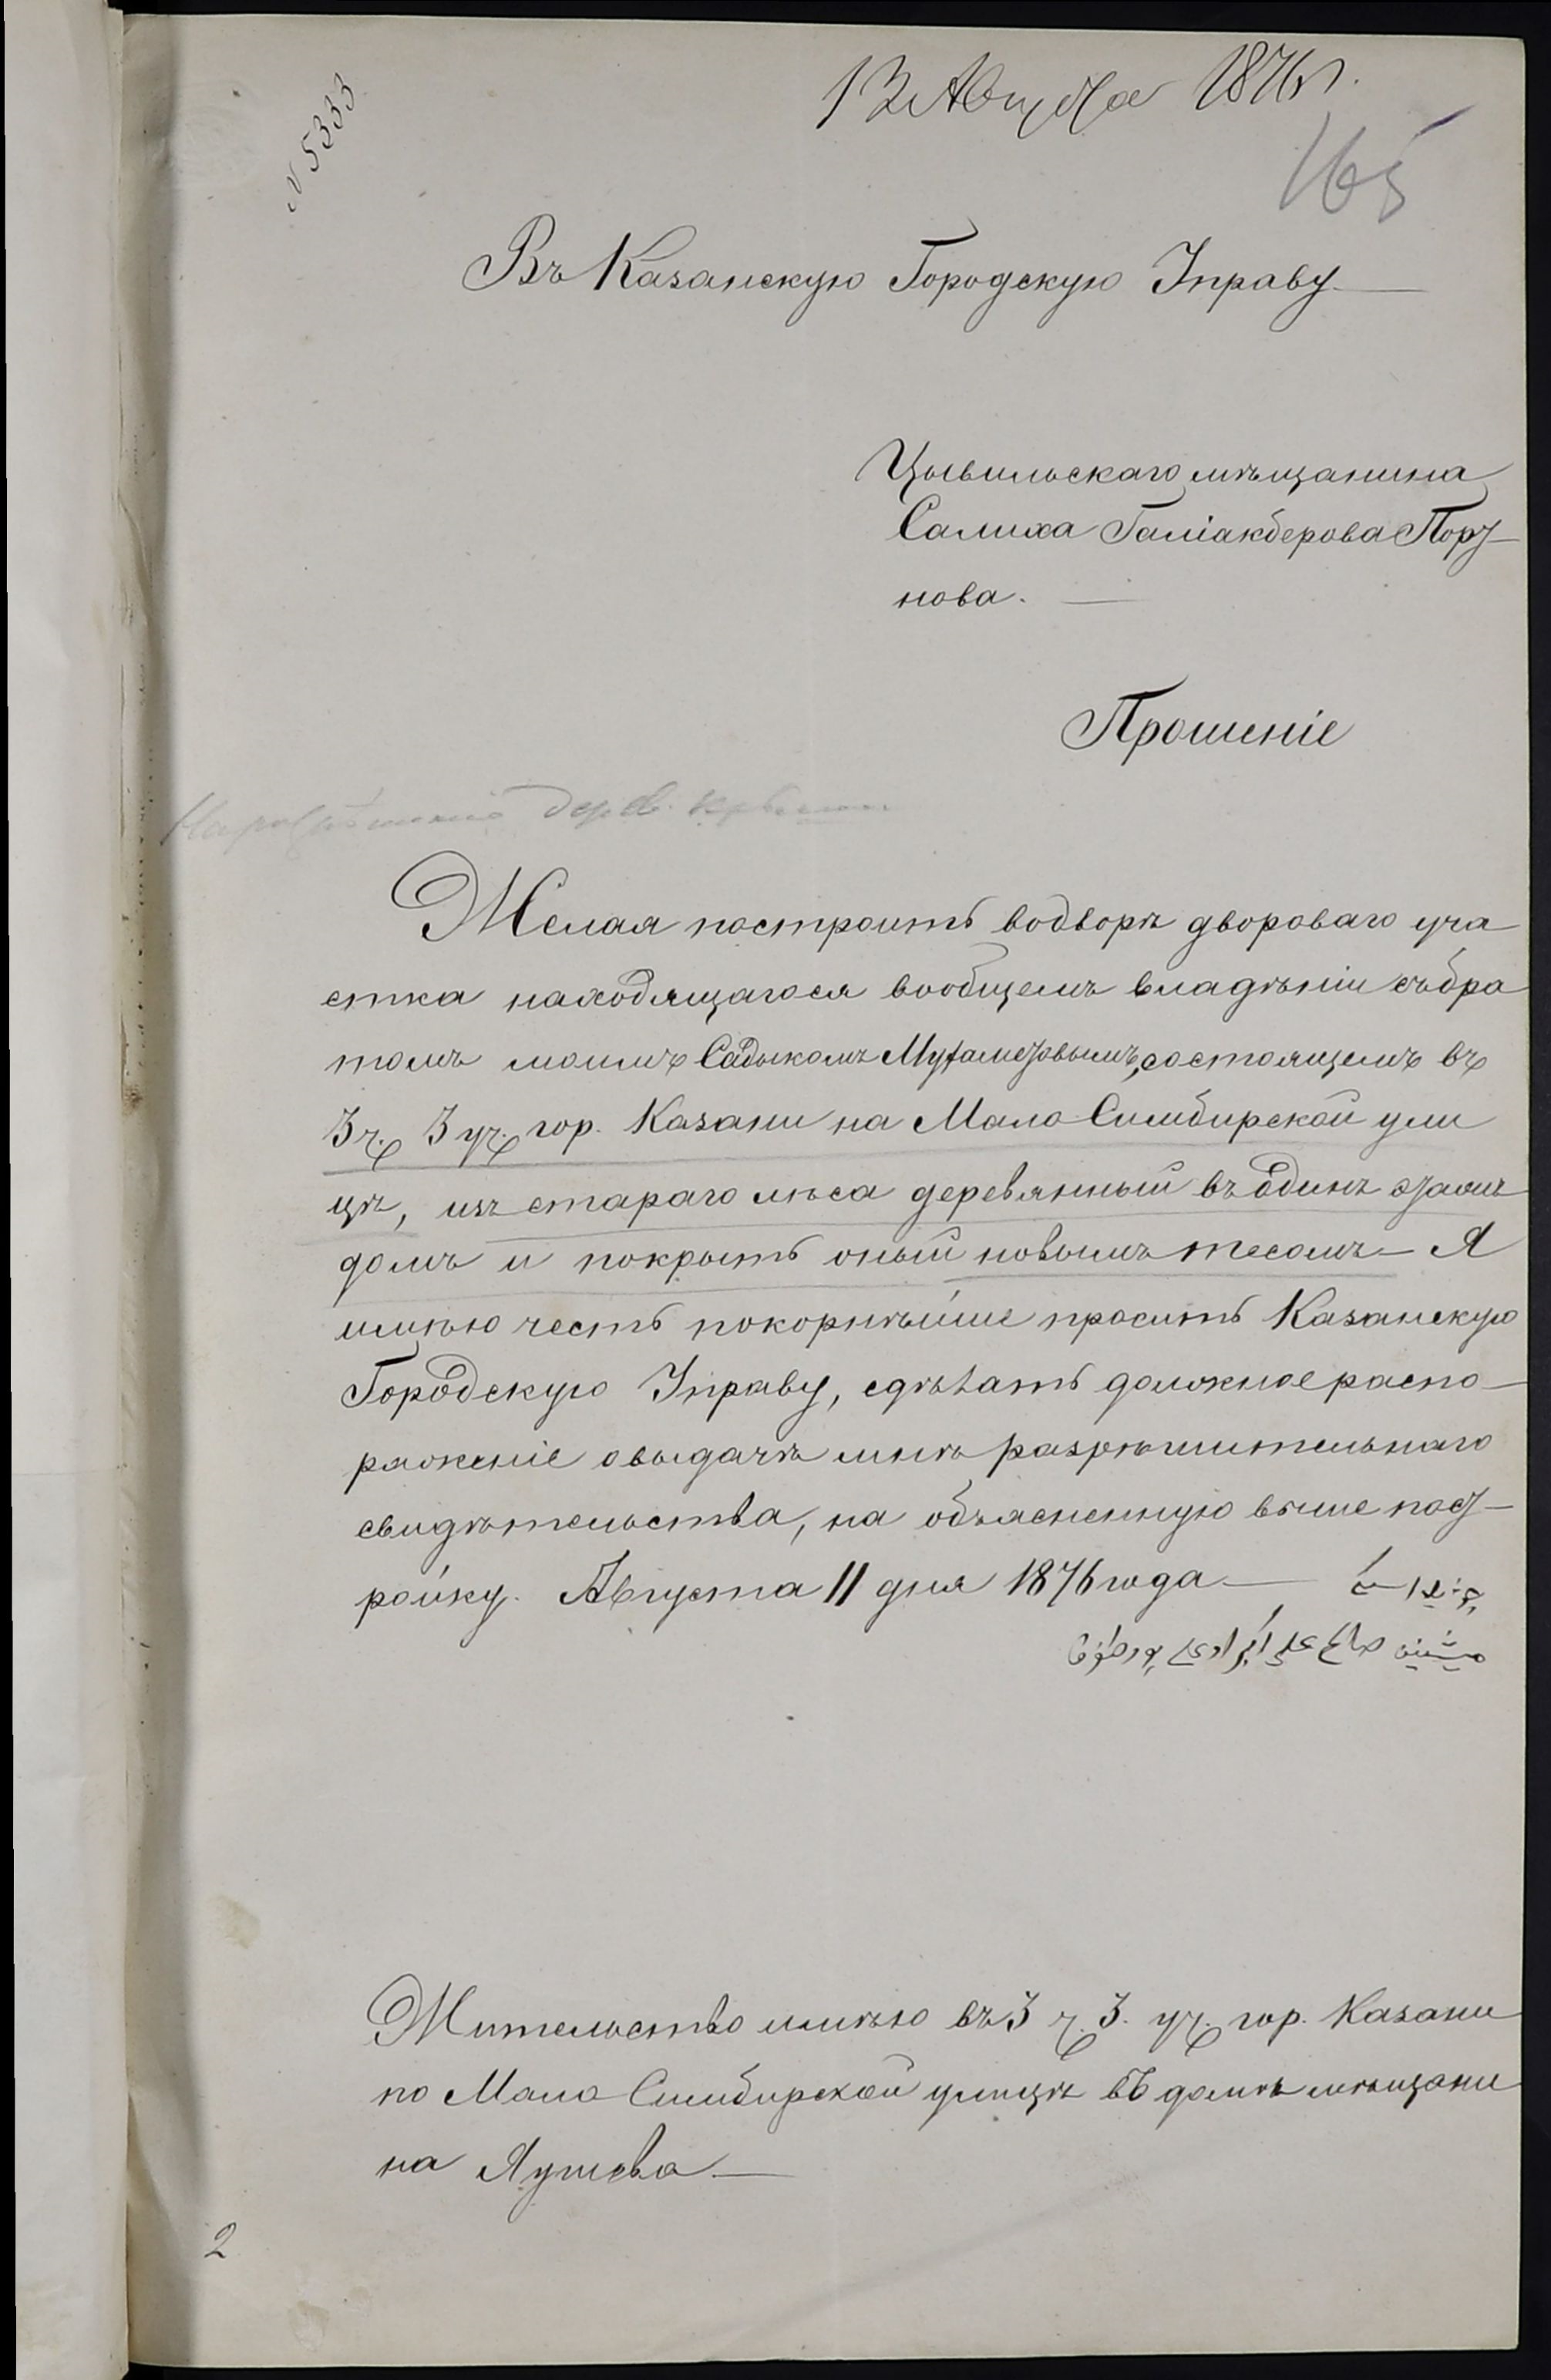 № 5333
13 Августа 1876 г.
165
Въ Казанскую Городскую Управу
Цывильскаго мѣщанина
Салиха Галіакберова Порту-
нова.
Прошеніе
дерев.
Желая построить водворѣ двороваго уча
стка находящагося вообщемъ владѣніи събра
томъ моимъ Садыкомъ состоящемъ въ
3 ч. 3 уч. гор. Казани на Мало Симбирской ули
цѣ, изъ стараго лѣса деревянный въ одинъ этажъ
домъ и покрыть оный новымъ тесомъ – Я
имѣю честь покорнѣйше просить Казанскую
Городскую Управу, сдѣлать должное распо-
ряженіе овыдачѣ мнѣ разрѣшительнаго
свидѣтельства, на объясненную выше пост-
ройку. Августа 11 дня 1876 года –
صالح علی
Жительство имѣю въ 3 ч. 3. уч. гор. Казани
по Мало Симбирской улицѣ въ домѣ мѣщани
на Яушева –
2